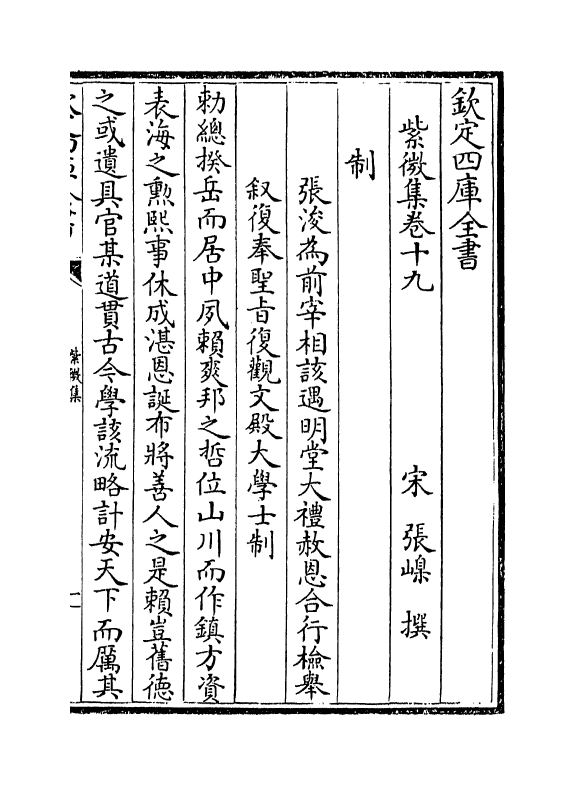 欽定四庫全書
紫微集卷十九
宋 張嵲 撰
制
張浚為前宰相該遇明堂大禮赦恩合行檢舉
叙復奉聖㫖復觀文殿大學士制
勅總揆岳而居中夙賴爽邦之哲位山川而作鎮方資
表海之勲熙事休成湛恩誕布將善人之是賴豈舊德
之或遺具官某道貫古今學該流略計安天下而厲其
紫微集